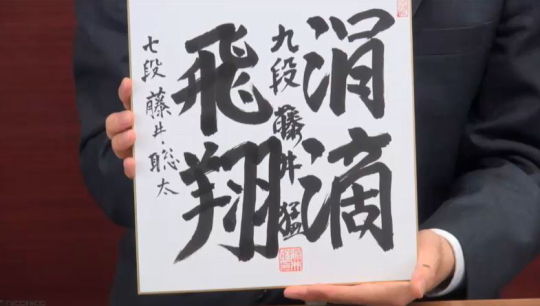 涓滴
九段 藤井猛
飛翔
七段 藤井聡太